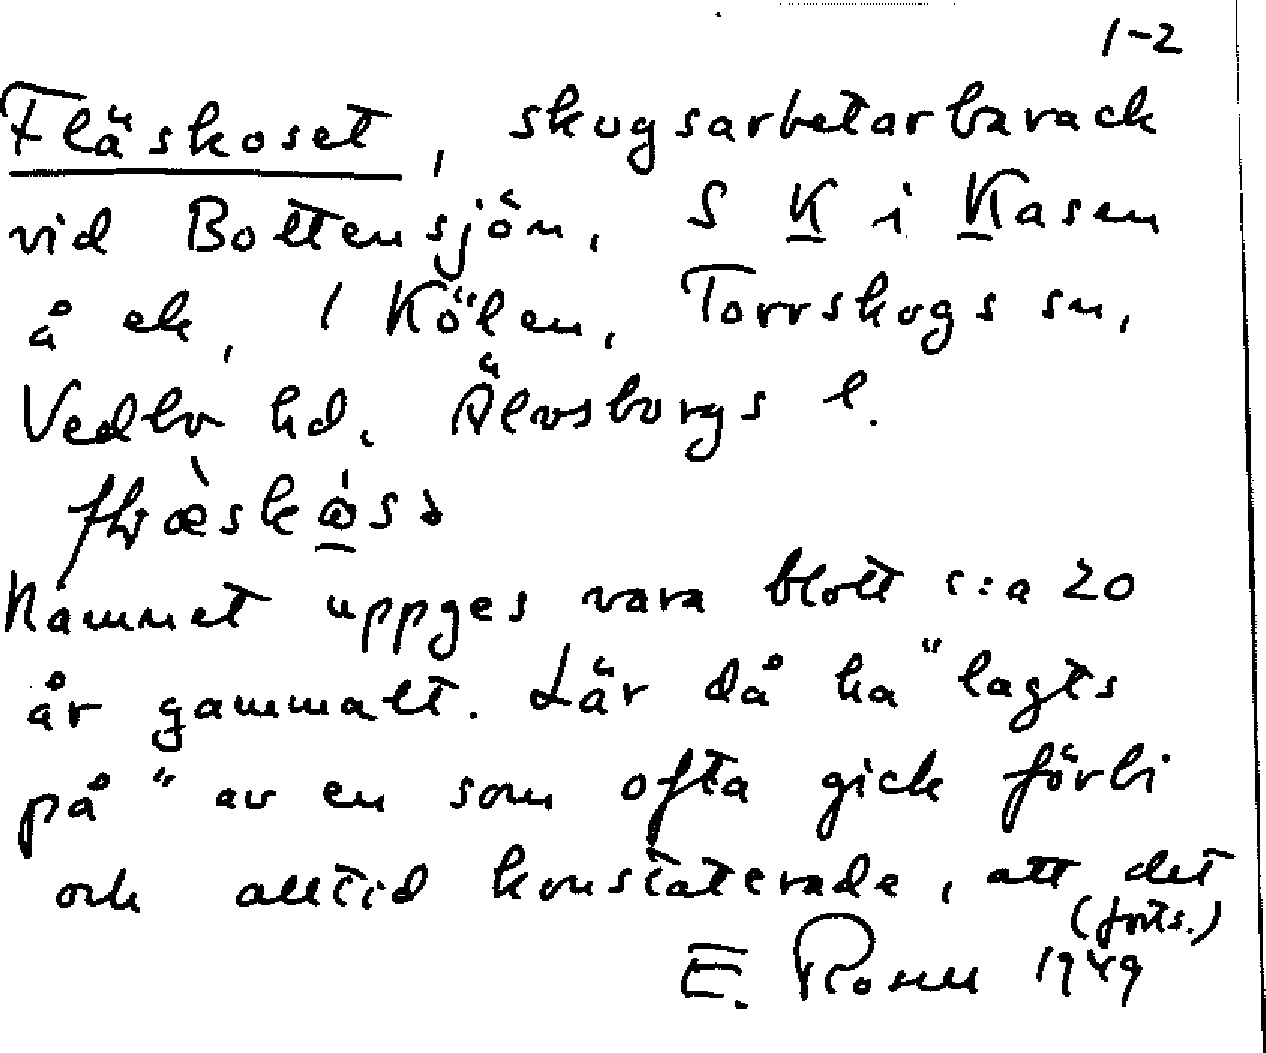 1-2
Fläskoset, skogsarbetarbarack
vid Bottensjön, S K i Kasen
å ek, 1 Kölen, Torrskogs sn,
Vedbo hd, Älvsborgs l.
Namnet uppges vara blott c:a 20
år gammalt. Lär då ha "lagts
på" av en som ofta gick förbi
och alltid konstaterade, att det
(forts.)
E. Rosell 1949